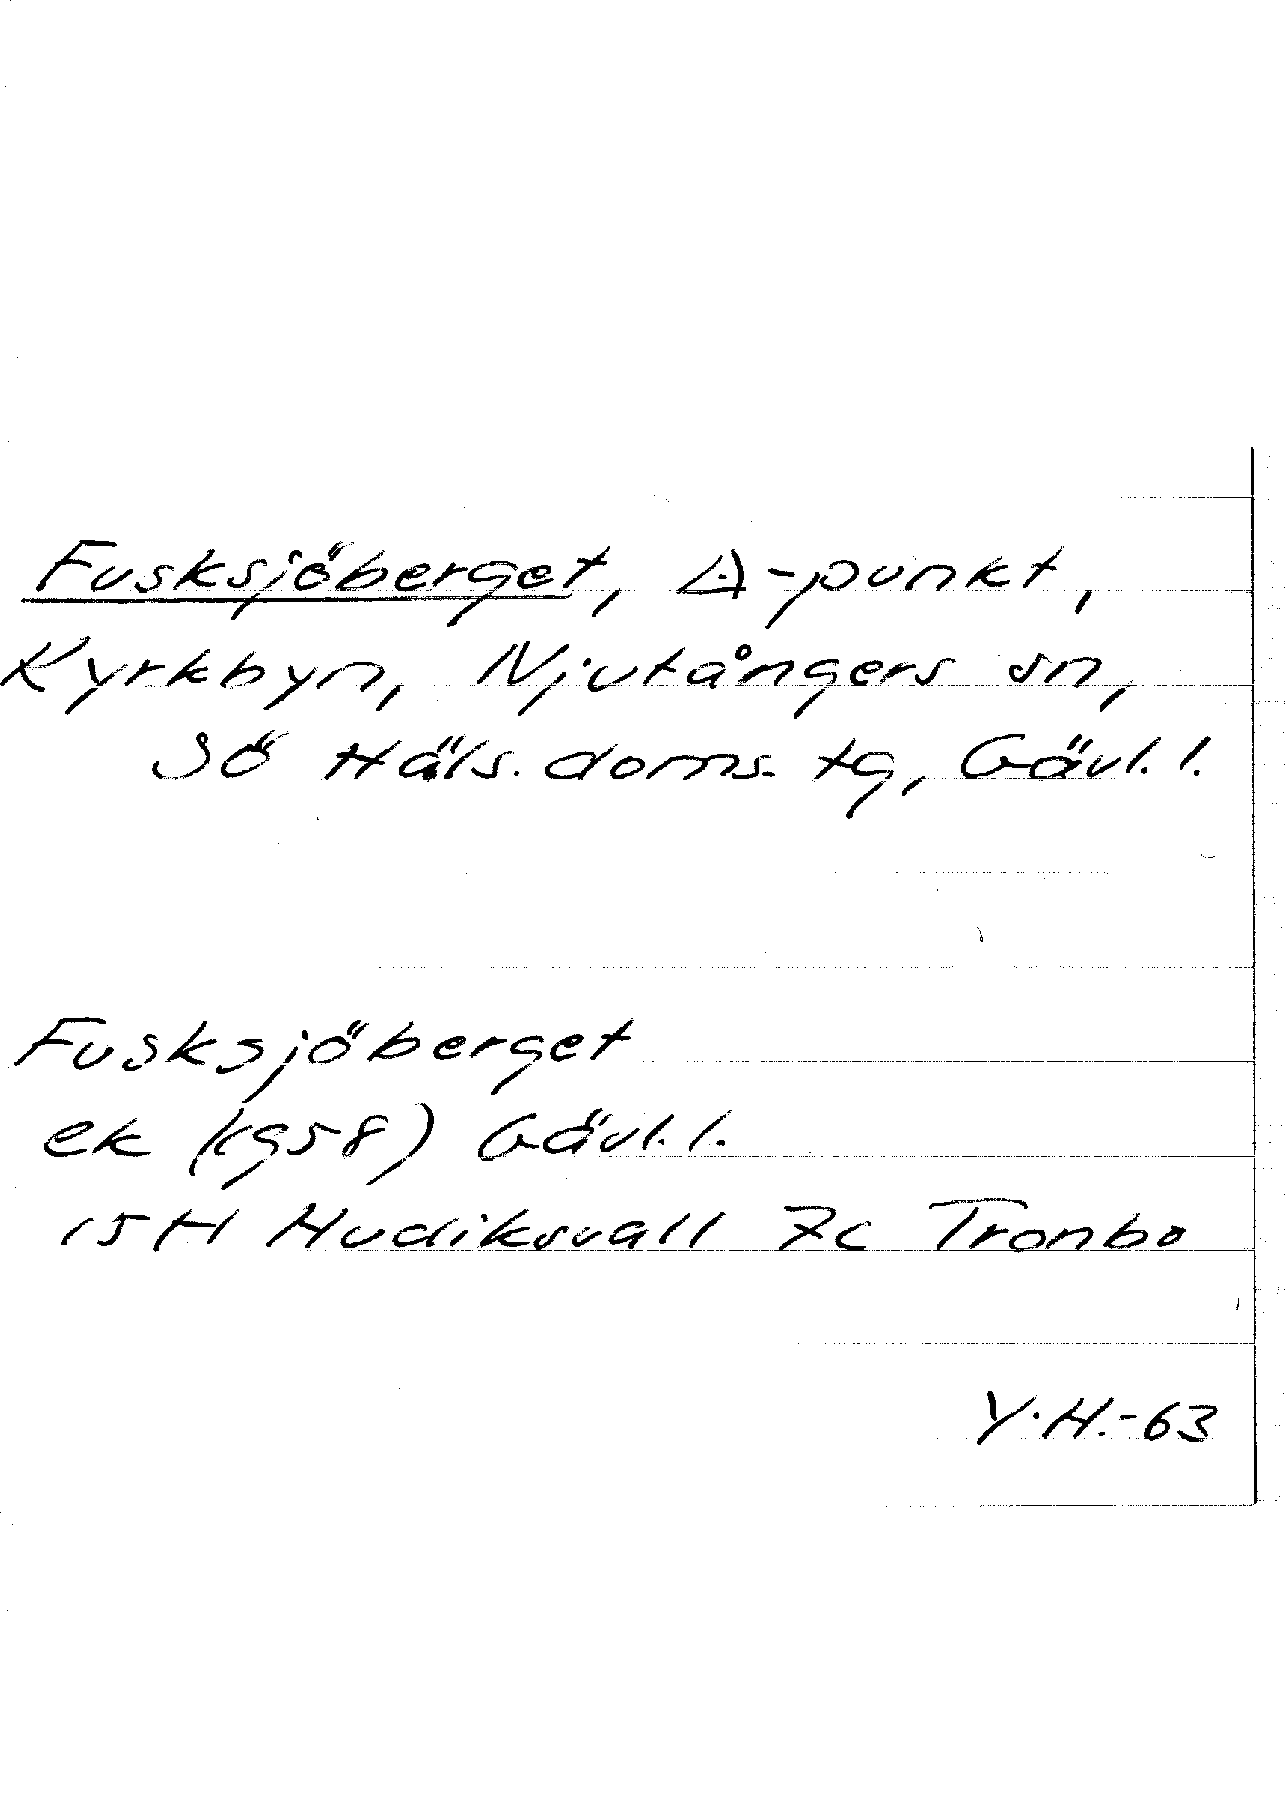 Fusksjöberget, △-punkt,
Kyrkbyn, Njutångers sn,
Sö Häls. doms. tg, Gävl. l.
Fusksjöberget
ek (1958) Gävl. l.
15H Hudiksvall 7c Tronbo
Y.H.-63